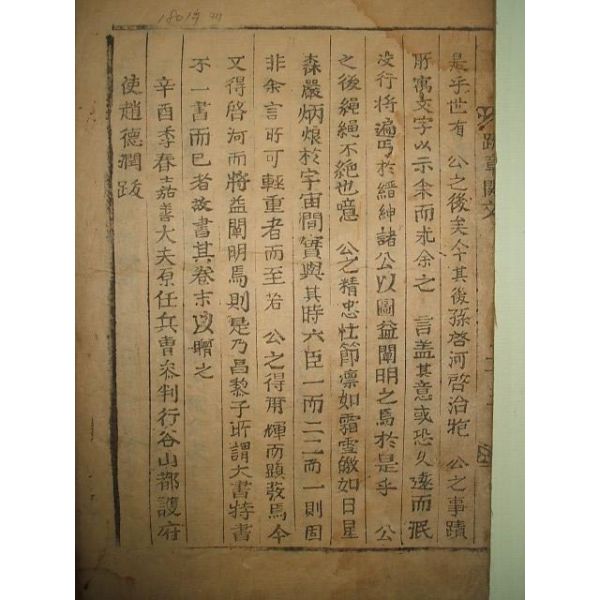 是乎世有 公之後矣今其後孫啓河啓治袍 公之事蹟
所寓文字以示余而求余之 言盖其意或恐久遠而泯
没行將遍丐於縉紳諸公以圖益闡明之焉於是乎 公
之後繩繩不絶也噫 公之精忠壮節凛如霜雪皦如日星
森嚴炳烺於宇宙間實與其時六臣一而二二而一則固
非余言所可輕重者而至若 公之得所輝而顕發焉今
又得啓河而將益闡明焉則是乃昌黎子所謂大書特書
不一書而已者故書其卷末以贈之
辛酉季春嘉善大夫原任兵曹叅判行谷山都護府
使趙德潤跋